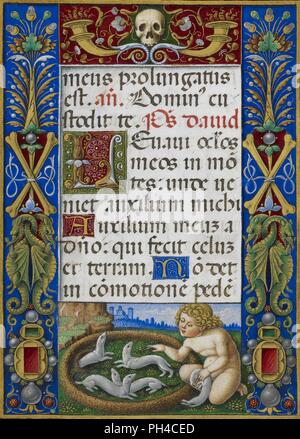 meus prolungatus
est. an̄. Dominꝰ cu
stodit te. Ps̄ dauid
Leuaui oc̄los
meos in mō
tes. unde ue
niet auxilium michi
Auxilium meuz a
dn̄o. qui fecit celuz
et terram. Nō det
in cōmotionē pedē